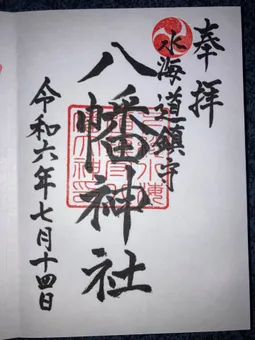 奉拝
水海道鎮守
八幡神社
令和六年七月十四日